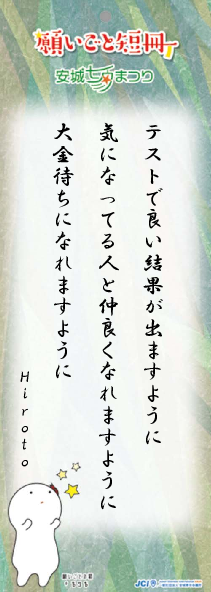 願いごと短冊
安城七夕まつり
テストで良い結果が出ますように
気になってる人と仲良くなれますように
大金待ちになれますように
Hiroto
JCI